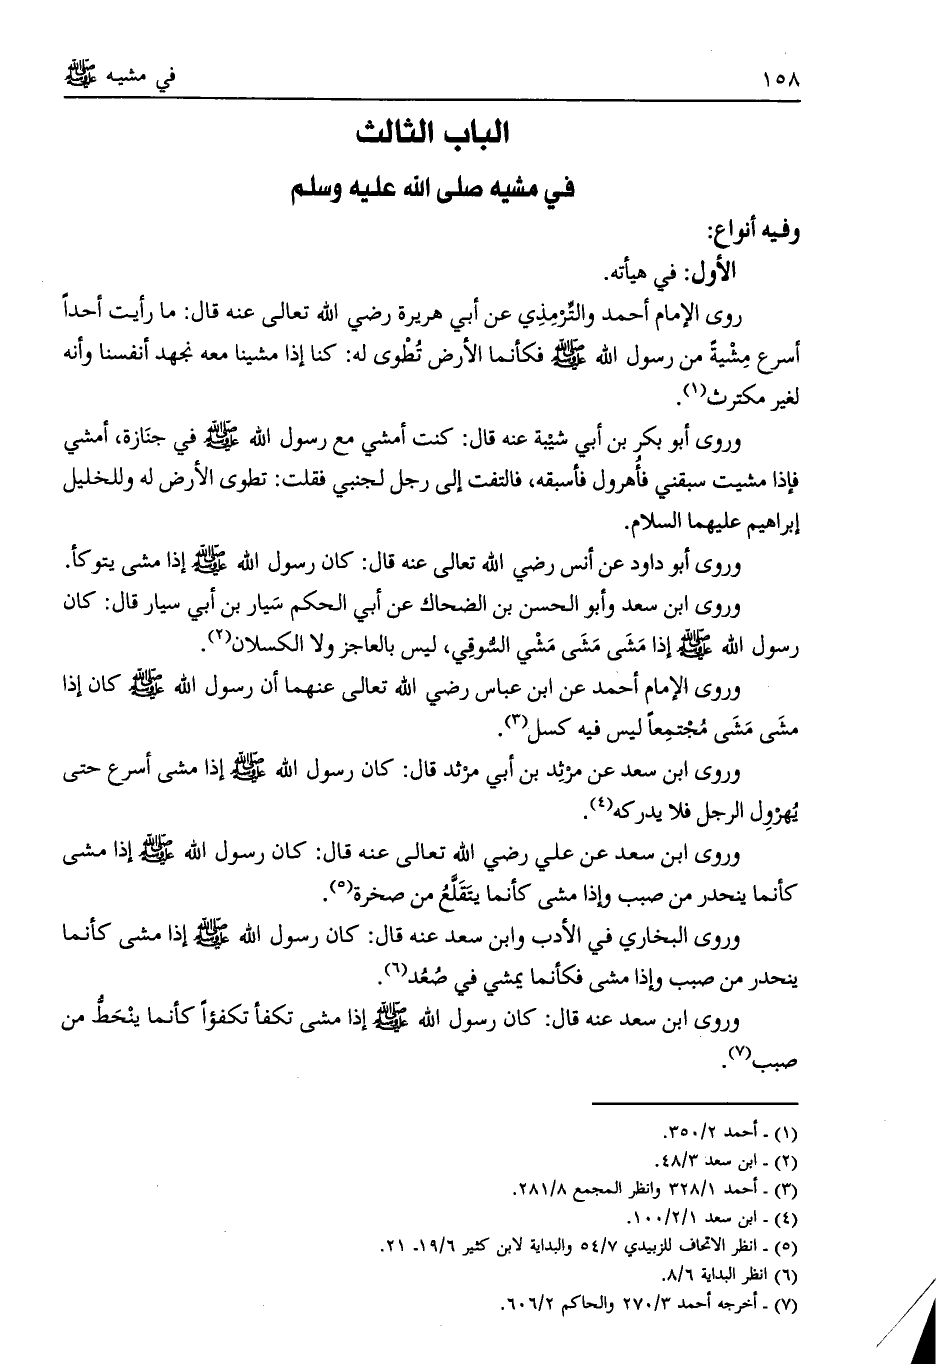 ١٥٨ في مشيه ﷺ
الباب الثالث
في مشيه صلى الله عليه وسلم
وفيه أنواع:
الأول: في هيأته.
روى الإمام أحمد والتِّرْمِذِي عن أبي هريرة رضي الله تعالى عنه قال: ما رأيت أحداً
أسرع مِشْيةً من رسول الله ﷺ فكأنما الأرض تُطْوى له: كنا إذا مشينا معه نجهد أنفسنا وأنه
لغير مكترث(١).
وروى أبو بكر بن أبي شيْبة عنه قال: كنت أمشي مع رسول الله ﷺ في جنَازة، أمشي
فإذا مشيت سبقني فأُهرول فأسبقه، فالتفت إلى رجل لجنبي فقلت: تطوى الأرض له وللخليل
إبراهيم عليهما السلام.
وروى أبو داود عن أنس رضي الله تعالى عنه قال: كان رسول الله ﷺ إذا مشى يتوكأ.
وروى ابن سعد وأبو الحسن بن الضحاك عن أبي الحكم سَيار بن أبي سيار قال: كان
رسول الله ﷺ إذا مَشَى مَشَى مَشْي السُّوقِي، ليس بالعاجز ولا الكسلان(٢).
وروى الإمام أحمد عن ابن عباس رضي الله تعالى عنهما أن رسول الله ﷺ كان إذا
مشَى مَشَى مُجْتمِعاً ليس فيه كسل(٣).
وروى ابن سعد عن مرْثِد بن أبي مرْثد قال: كان رسول الله ﷺ إذا مشى أسرع حتى
يُهرْوِل الرجل فلا يدركه(٤).
وروى ابن سعد عن علي رضي الله تعالى عنه قال: كان رسول الله ﷺ إذا مشى
كأنما ينحدر من صبب وإذا مشى كأنما يتَقَلَّعُ من صخرة(٥).
وروى البخاري في الأدب وابن سعد عنه قال: كان رسول الله ﷺ إذا مشى كأنما
ينحدر من صبب وإذا مشى فكأنما يمشي في صُعُد(٦).
وروى ابن سعد عنه قال: كان رسول الله ﷺ إذا مشى تكفأ تكفؤاً كأنما ينْحَطُّ من
صبب(٧).
(١) ـ أحمد ٣٥٠/٢.
(٢) ـ ابن سعد ٤٨/٣.
(٣) ـ أحمد ٣٢٨/١ وانظر المجمع ٢٨١/٨.
(٤) ـ ابن سعد ١٠٠/٢/١.
(٥) ـ انظر الاتحاف للزبيدي ٥٤/٧ والبداية لابن كثير ١٩/٦ـ ٢١.
(٦) انظر البداية ٨/٦.
(٧) ـ أخرجه أحمد ٢٧٠/٣ والحاكم ٦٠٦/٢.